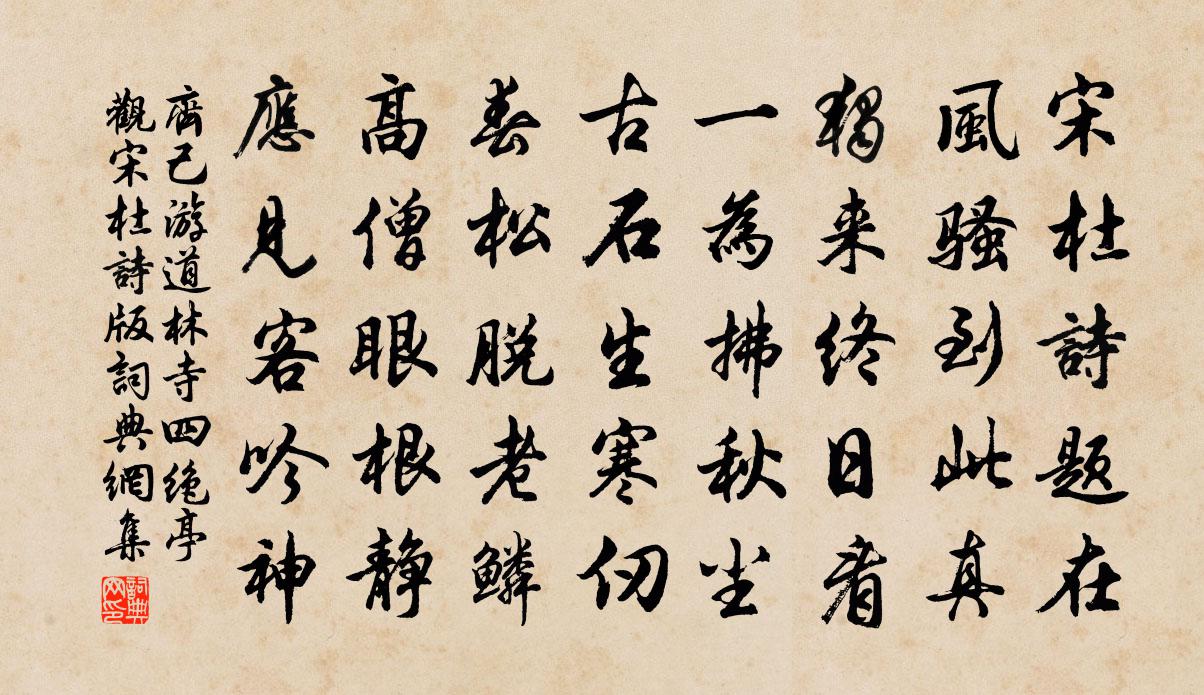 宋杜詩題在
風騷到此真
獨来終日看
一為拂秋塵
古石生寒仞
春松脱老鱗
高僧眼根静
應見客吟神
齊己游道林寺四絶亭
觀宋杜詩版詞典網集
詞典网印